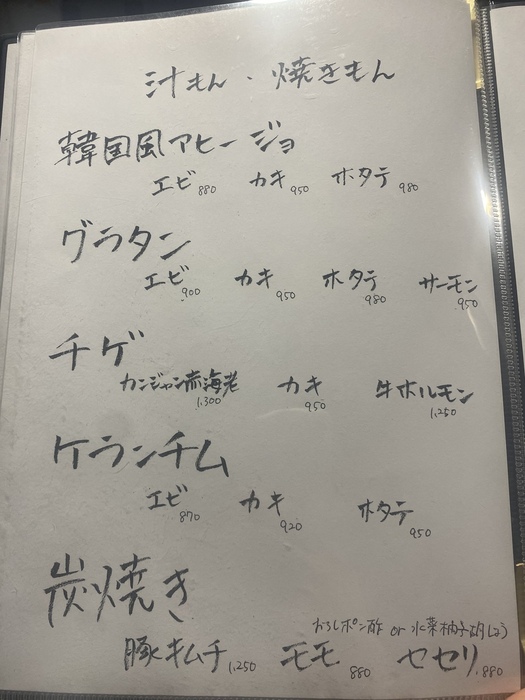 汁もん・焼きもん
韓国風アヒージョ
エビ 880 カキ 950 ホタテ 980
グラタン
エビ 900 カキ 950 ホタテ 980 サーモン 950
チゲ
カンジャン赤海老 1,300 カキ 950 牛ホルモン 1,250
ケランチム
エビ 870 カキ 920 ホタテ 950
炭焼き
おろしポン酢 or 水菜柚子胡しょう
豚キムチ 1,250 モモ 880 セセリ 880